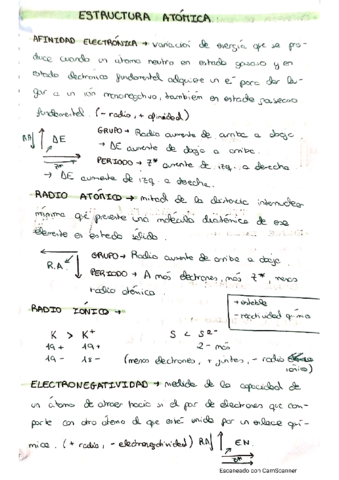 ESTRUCTURA ATÓMICA.
AFINIDAD ELECTRÓNICA → variación de energía que se pro-
duce cuando un átomo neutro en estado gaseoso y en
estado electrónico fundamental adquiere un e⁻ para dar lu-
gar a un ión mononegativo, también en estado gaseoso
fundamental. (- radio, + afinidad)
RA ΔE
GRUPO → Radio aumenta de arriba a abajo
→ ΔE aumenta de abajo a arriba.
PERIODO → Z* aumenta de izq. a derecha
→ ΔE aumenta de izq. a derecha.
RADIO ATÓMICO → mitad de la distancia internuclear
mínima que presenta una molécula diatómica de ese
elemento en estado sólido.
R.A.
GRUPO → Radio aumenta de arriba a abajo
PERIODO → A más electrones, más Z*, menos
radio atómico
+ estable
- reactividad química
RADIO IÓNICO →
K > K⁺
19+ 19+
19- 18-
S < S²⁻
2- más
(menos electrones, + juntos, - radio iónico)
ELECTRONEGATIVIDAD → medida de la capacidad de
un átomo de atraer hacia sí el par de electrones que com-
parte con otro átomo al que esté unido por un enlace quí-
mico. (+ radio, - electronegatividad) RA EN.
Z*
Escaneado con CamScanner